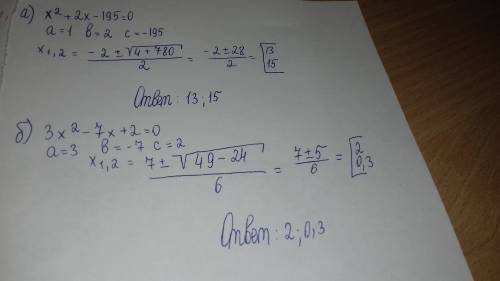 а) x² + 2x - 195 = 0
a = 1 b = 2 c = -195
x₁,₂ = (-2 ± √(4 + 780))/2 = (-2 ± 28)/2 = [13 15
Ответ: 13; 15
б) 3x² - 7x + 2 = 0
a = 3 b = -7 c = 2
x₁,₂ = (7 ± √(49 - 24))/6 = (7 ± 5)/6 = [2 0,3
Ответ: 2; 0,3